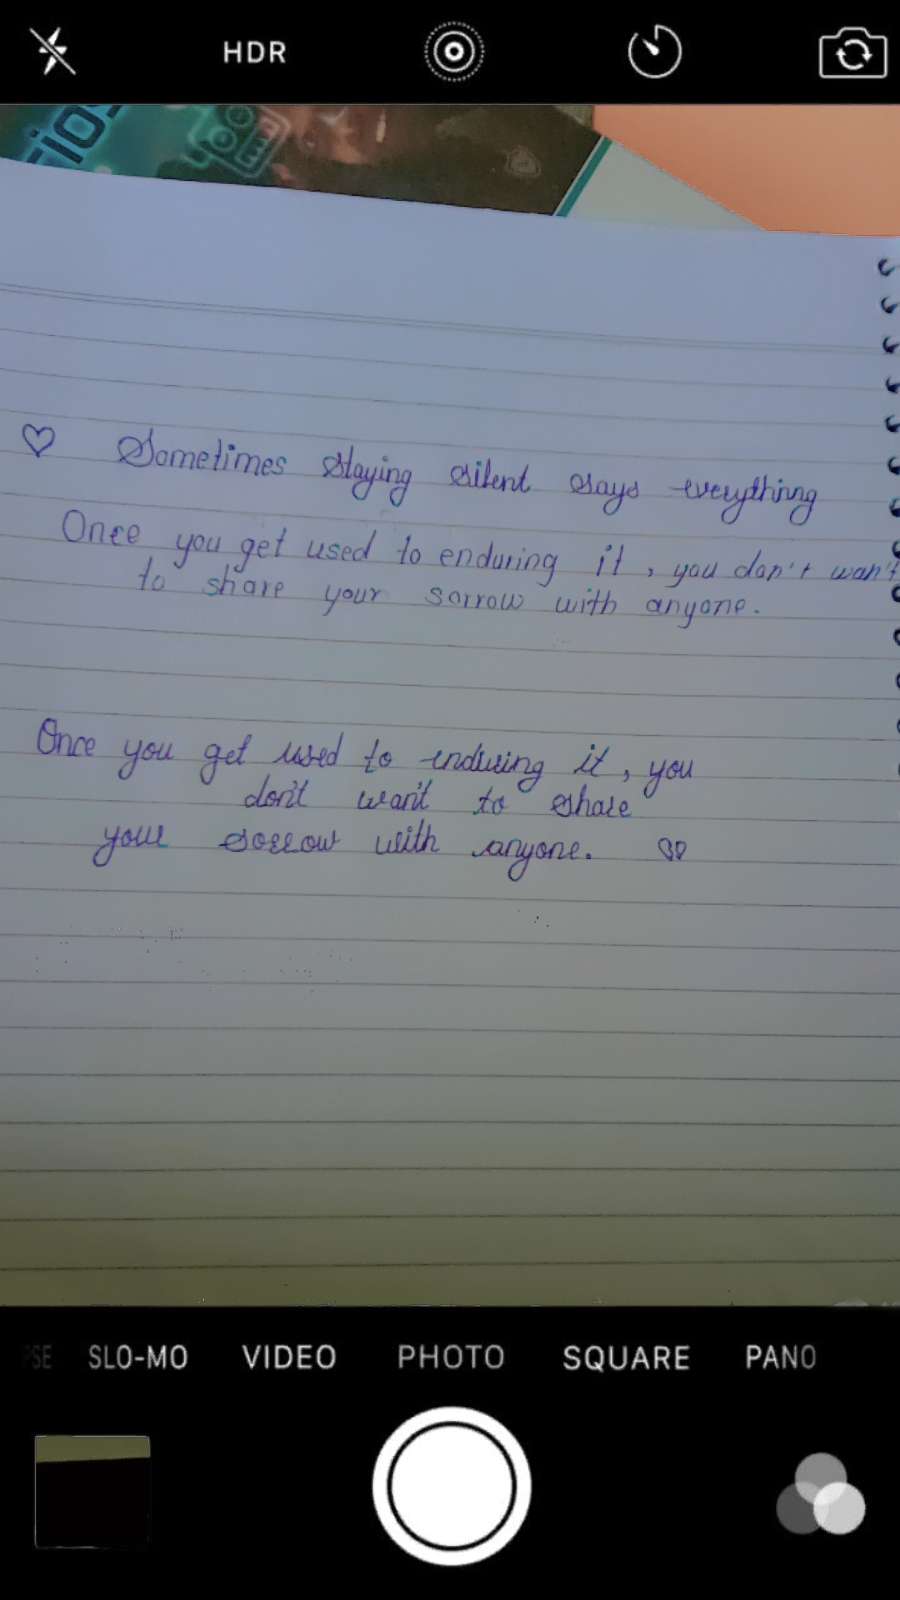 HDR
♡ Sometimes staying silent says everything
Once you get used to enduring it, you don't want
to share your sorrow with anyone.
Once you get used to enduring it, you
don't want to share
your sorrow with anyone. ♡♡
SLO-MO VIDEO PHOTO SQUARE PANO